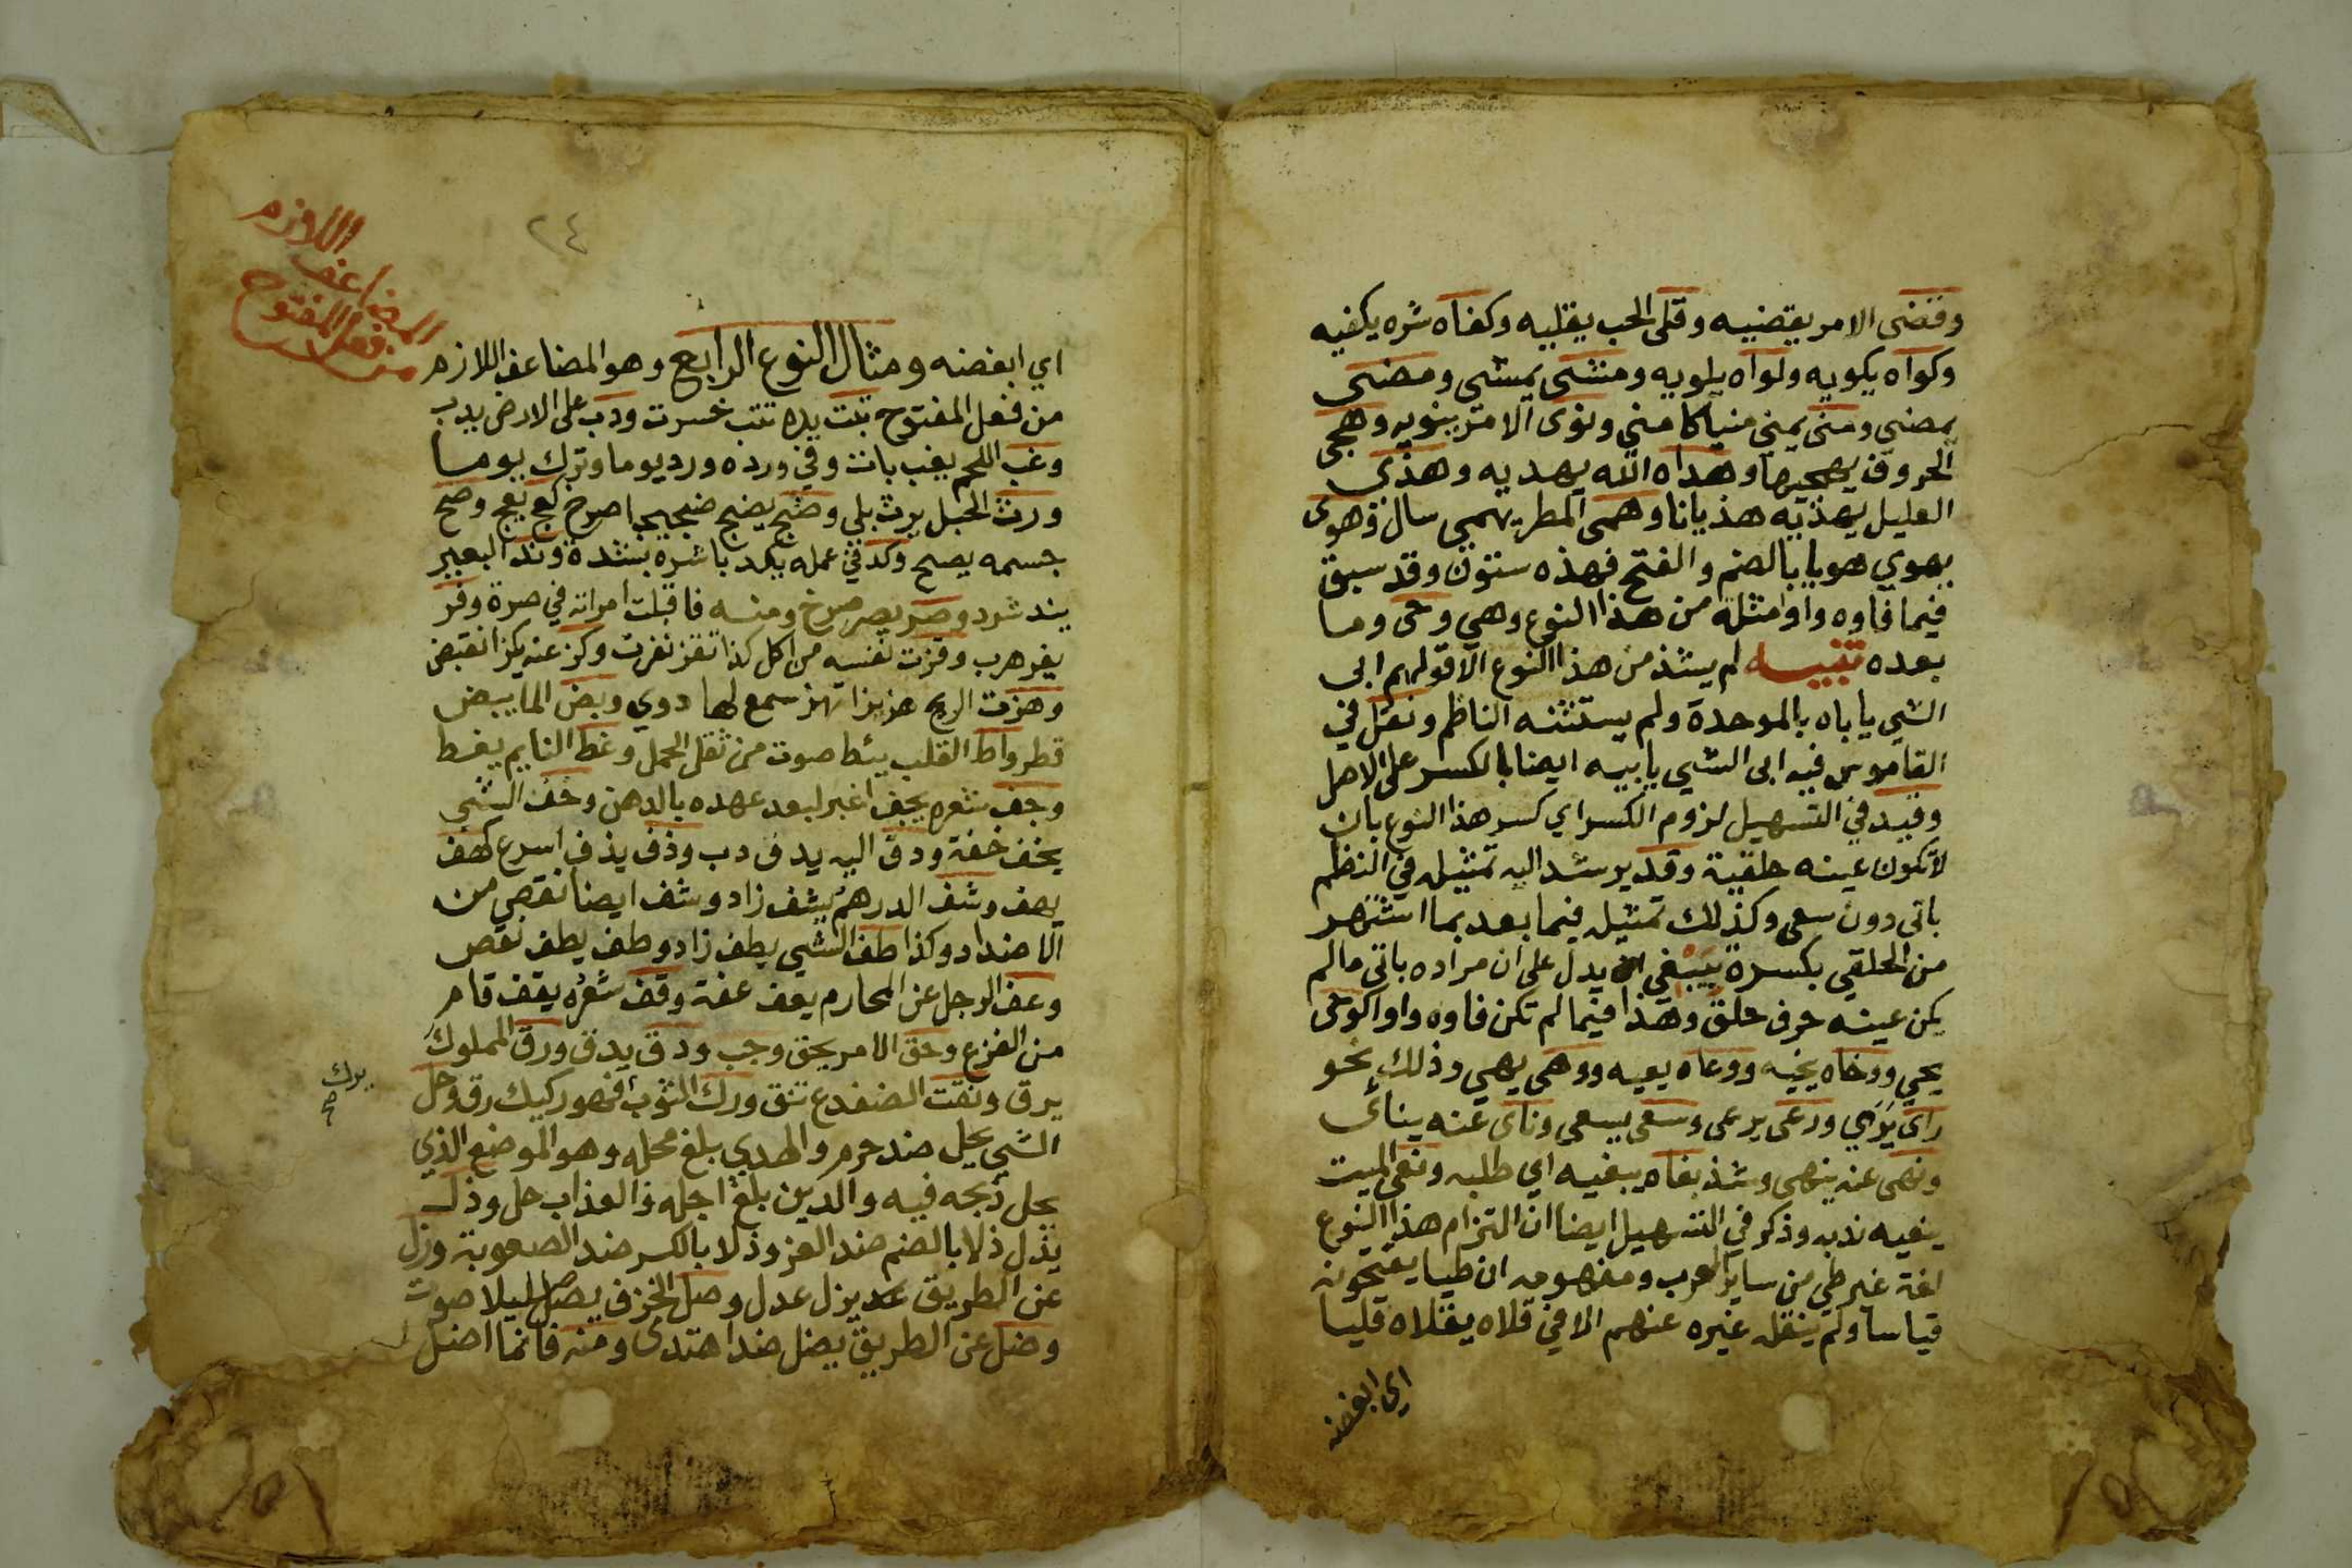 وقضى الامر يقضيه وقلى الحب يقليه وكفاه شره يكفيه
وكواه يكويه ولواه يلويه ومشى يمشي ومضى
يمضي ومنى يمني منيا كامني ونوى الامر ينويه وهجى
الحروف يهجيها وهداه الله يهديه وهذى
العليل يهذيه هذيانا وهمى المطر يهمي سال وهوى
يهوي هويا بالضم والفتح فهذه ستون وقد سبق
فيما فاوه واو امثلة من هذا النوع وهي وحى وما
بعده تنبيه لم يشذ من هذا النوع الا قولهم ابى
الشي ياباه بالموحدة ولم يستثنه الناظم ونقل في
القاموس فيه ابى الشي يابيه ايضا بالكسر على الاصل
وقيد في التسهيل لزوم الكسر اي كسر هذا النوع بان
لا تكون عينه حلقية وقد يرشد اليه تمثيله في النظم
باتى دون سعى وكذلك تمثيله فيما بعد بما اشتهر
من الحلقي بكسرة يبغي يدل على ان مراده باتى ما لم
يكن عينه حرف حلق وهذا فيما لم تكن فاوه واوا كوحى
يحي ووخاه يخيه ووعاه يعيه ووهى يهي وذلك نحو
راى يرى ورعى يرعى وسعى يسعى وناى عنه يناى
ونهى عنه ينهى وشذ بغاه يبغيه اي طلبه ونعى الميت
ينعيه ندبه وذكر في التسهيل ايضا ان التزام هذا النوع
لغة غير طي من ساير العرب ومفهومه ان طيا يفتحونه
قياسا ولم ينقل غيره عنهم الا في قلاه يقلاه قليا
اي ابغضه
٢٤
اللازم
المضاعف
من فعل المفتوح
اي ابغضه ومثال النوع الرابع وهو المضاعف اللازم
من فعل المفتوح تبت يده تتب خسرت ودب على الارض يدب
وغب اللحم يغب بانت وفي ورده ورد يوما وترك يوما
ورث الحبل يرث بلي وضج يضج ضجيجا صرخ كعج يعج وصح
جسمه يصح وكد في عمله يكد باشره بشدة وند البعير
يند شرد وصر يصر صرخ ومنه فاقبلت امراته في صرة وفر
يفر هرب وقزت نفسه من اكل كذا تقز نفرت وكز عنه يكز انقبض
وهزت الريح هزيزا تهز سمع لها دوي وبض الما يبض
قطر واط القلب يئط صوت من ثقل الحمل وغط النايم يغط
وجف شعره يجف اغبر لبعد عهده بالدهن وخف الشي
يخف خفة ودف اليه يدف دب وذف يذف اسرع كهف
يهف وشف الدرهم يشف زاد وشف ايضا نقص من
الاضداد وكذا طف الشي يطف زاد وطف يطف نقص
وعف الرجل عن المحارم يعف عفة وقف شعره يقف قام
من الفزع وحق الامر يحق وجب ودق يدق ورق المملوك
يرق ونقت الضفدع تنق ورك الثوب فهو ركيك رق وحل
يرك
صح
الشي يحل ضد حرم والهدي بلغ محله وهو الموضع الذي
يحل ذبحه فيه والدين بلغ اجله والعذاب حل وذل
يذل ذلا بالضم ضد العز وذلا بالكسر ضد الصعوبة وزل
عن الطريق يزل عدل وصل الخزف يصل صليلا صوت
وضل عن الطريق يضل ضد اهتدى ومنه فانما اضل